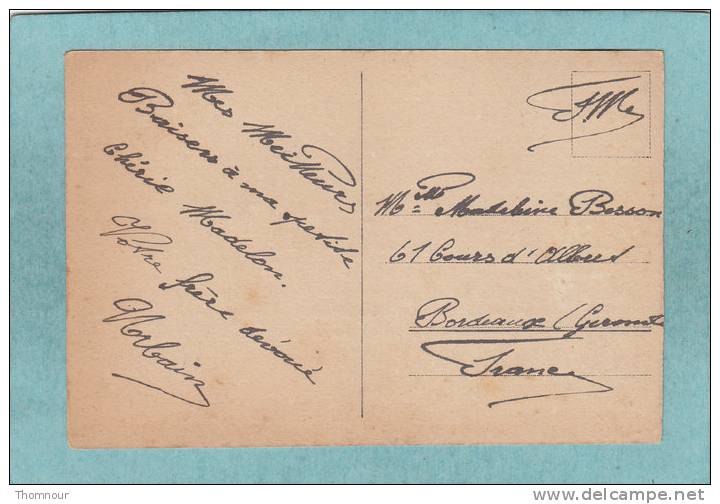 Mes Meilleurs
Baisers à ma petite
Chérie Madelon.
Votre frère dévoué
F.M.
Mlle Madeleine Besson
61 Cours d'Albret
Bordeaux (Gironde
France
Thomnour
www.delcampe.net